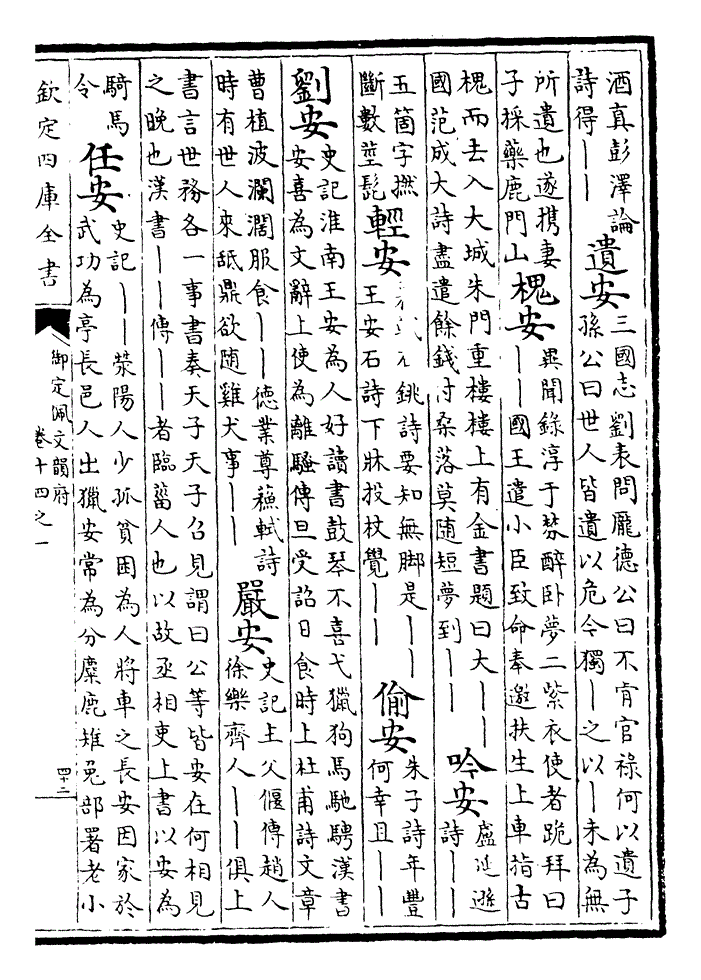 酒真彭澤論
詩得——
遺安
三國志劉表問龐德公曰不肯官祿何以遺子
孫公曰世人皆遺以危今獨—之以—未為無
所遺也遂携妻
子採藥鹿門山
槐安
異聞錄淳于棼醉卧夢二紫衣使者跪拜曰
——國王遣小臣致命奉邀扶生上車指古
槐而去入大城朱門重樓樓上有金書題曰大——
國范成大詩盡遣餘錢付桑落莫随短夢到——
吟安
盧延遜
詩——
五箇字撚
斷數莖髭
輕安
銚詩要知無脚是——
王安石詩下牀投杖覺——
偷安
朱子詩年豐
何幸且——
劉安
史記淮南王安為人好讀書鼓琴不喜弋獵狗馬馳騁漢書
安喜為文辭上使為離騷傳旦受詔日食時上杜甫詩文章
曹植波瀾濶服食——德業尊蘓軾詩
時有世人來舐鼎欲随雞犬事——
嚴安
史記主父偃傳趙人
徐樂齊人——俱上
書言世務各一事書奏天子天子召見謂曰公等皆安在何相見
之晚也漢書——傳——者臨菑人也以故丞相吏上書以安為
騎馬
令
任安
史記——滎陽人少孤貧困為人將車之長安因家於
武功為亭長邑人出獵安常為分麋鹿雉兔部署老小
欽定四庫全書
御定佩文韻府
卷十四之一
四十二